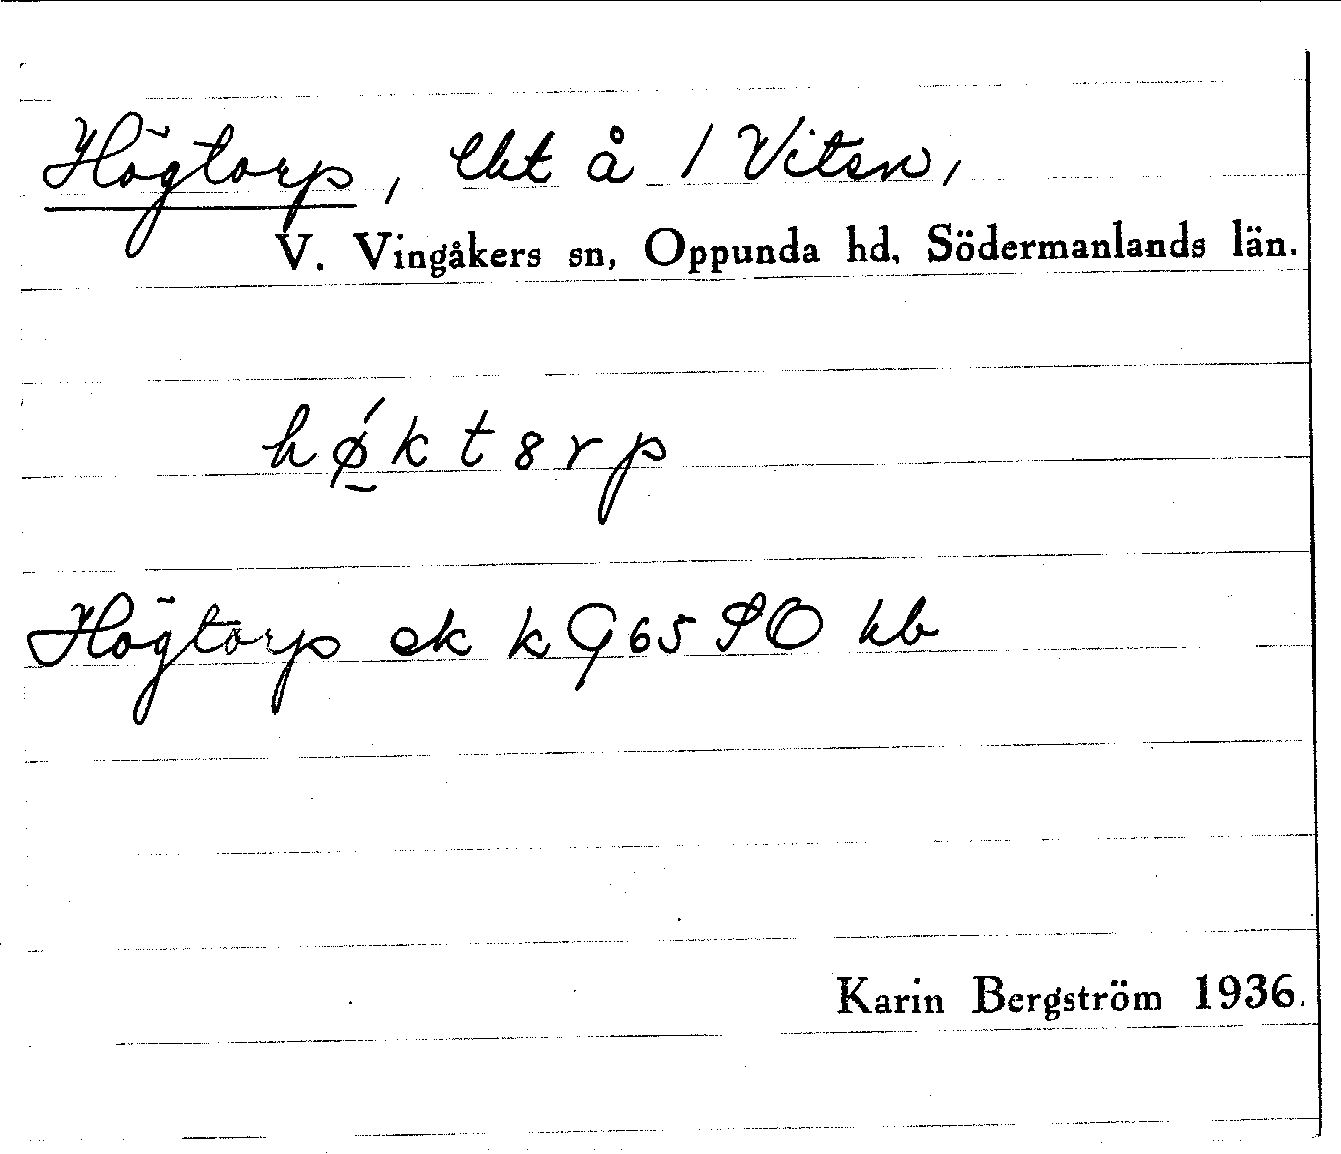 Högtorp, lht å 1 Viten,
V. Vingåkers sn, Oppunda hd, Södermanlands län.
hǿ̱kt8rp
Högtorp ek k G65 SO kb
Karin Bergström 1936.